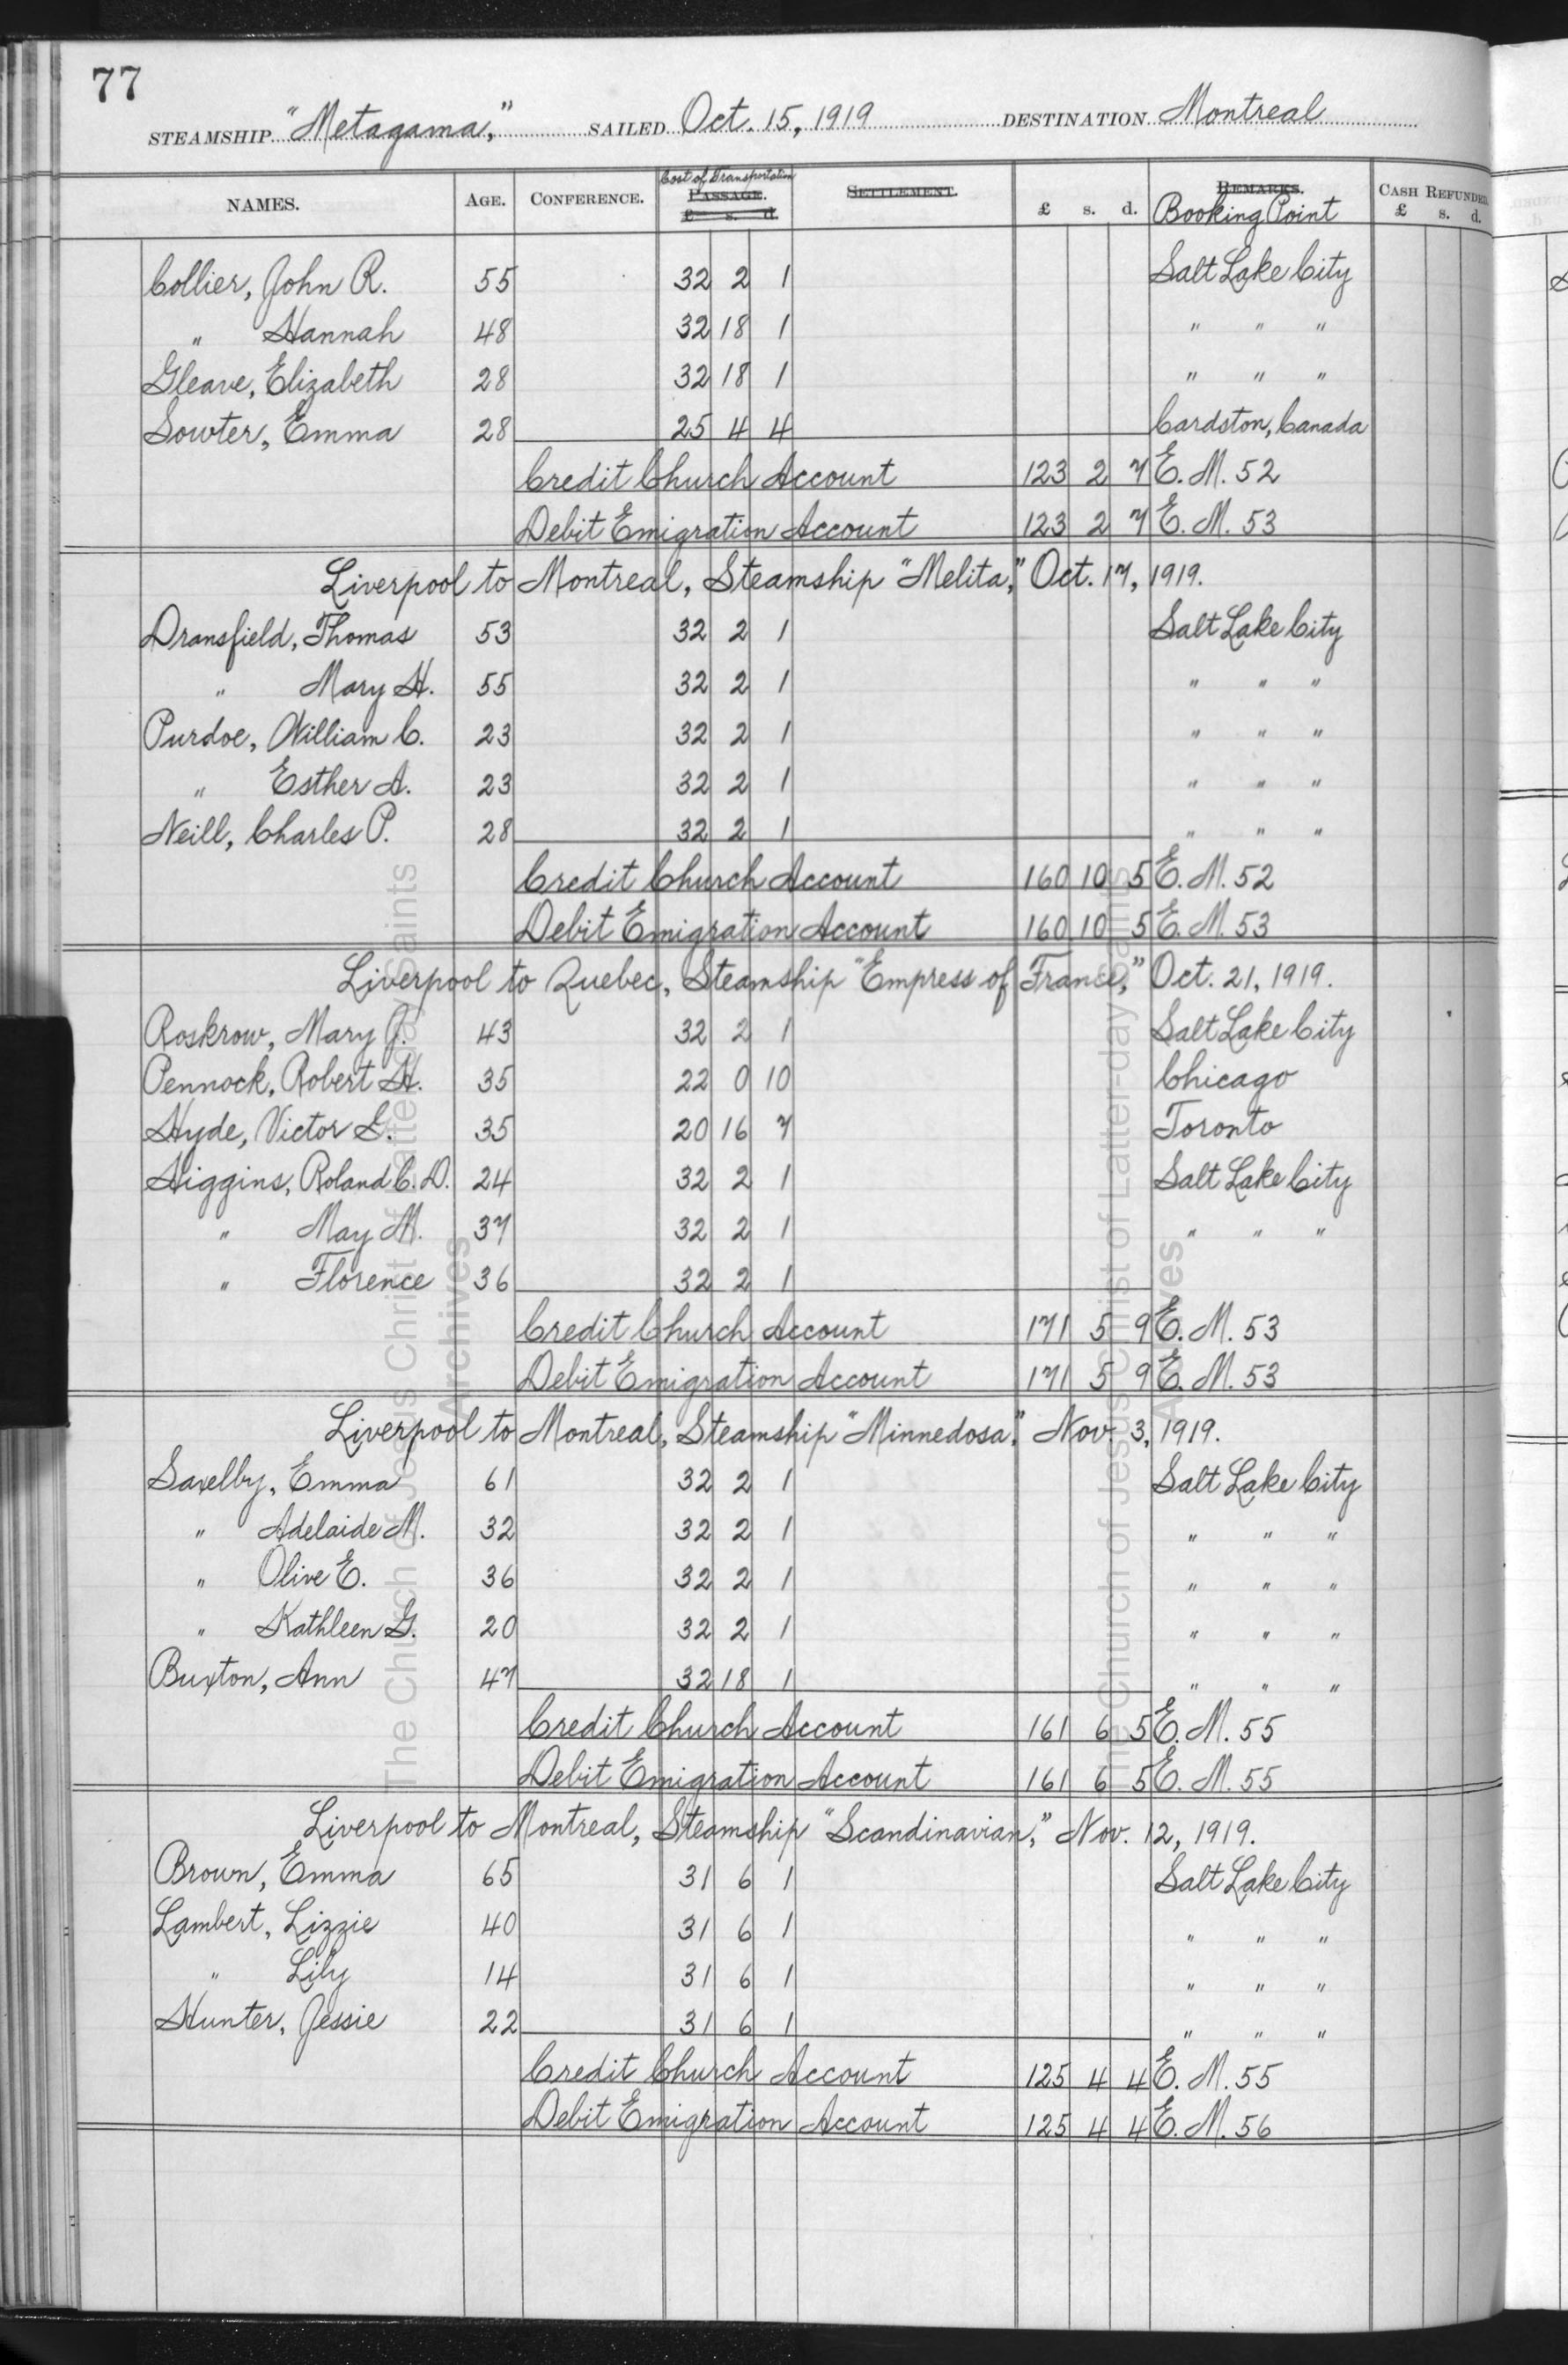 77
STEAMSHIP "Metagama," SAILED Oct. 15, 1919 DESTINATION Montreal
NAMES. AGE. CONFERENCE. Cost of Transportation PASSAGE. £ s. d. SETTLEMENT. £ s. d. REMARKS. Booking Point CASH REFUNDED. £ s. d.
Collier, John R. 55 32 2 1 Salt Lake City
" Hannah 48 32 18 1 " " "
Gleave, Elizabeth 28 32 18 1 " " "
Sowter, Emma 28 25 4 4 Cardston, Canada
Credit Church Account 123 2 7 E. M. 52
Debit Emigration Account 123 2 7 E. M. 53
Liverpool to Montreal, Steamship "Melita," Oct. 17, 1919.
Dransfield, Thomas 53 32 2 1 Salt Lake City
" Mary H. 55 32 2 1 " " "
Purdoe, William C. 23 32 2 1 " " "
" Esther A. 23 32 2 1 " " "
Neill, Charles P. 28 32 2 1 " " "
Credit Church Account 160 10 5 E. M. 52
Debit Emigration Account 160 10 5 E. M. 53
Liverpool to Quebec, Steamship "Empress of France," Oct. 21, 1919.
Roskrow, Mary J. 43 32 2 1 Salt Lake City
Pennock, Robert H. 35 22 0 10 Chicago
Hyde, Victor G. 35 20 16 7 Toronto
Higgins, Roland C. D. 24 32 2 1 Salt Lake City
" May M. 37 32 2 1 " " "
" Florence 36 32 2 1
Credit Church Account 171 5 9 E. M. 53
Debit Emigration Account 171 5 9 E. M. 53
Liverpool to Montreal, Steamship "Minnedosa," Nov. 3, 1919.
Saxelby, Emma 61 32 2 1 Salt Lake City
" Adelaide M. 32 32 2 1 " " "
" Olive E. 36 32 2 1 " " "
" Kathleen G. 20 32 2 1 " " "
Buxton, Ann 47 32 18 1 " " "
Credit Church Account 161 6 5 E. M. 55
Debit Emigration Account 161 6 5 E. M. 55
Liverpool to Montreal, Steamship "Scandinavian," Nov. 12, 1919.
Brown, Emma 65 31 6 1 Salt Lake City
Lambert, Lizzie 40 31 6 1 " " "
" Lily 14 31 6 1 " " "
Hunter, Jessie 22 31 6 1 " " "
Credit Church Account 125 4 4 E. M. 55
Debit Emigration Account 125 4 4 E. M. 56
The Church of Jesus Christ of Latter-day Saints
Archives
The Church of Jesus Christ of Latter-day Saints
Archives